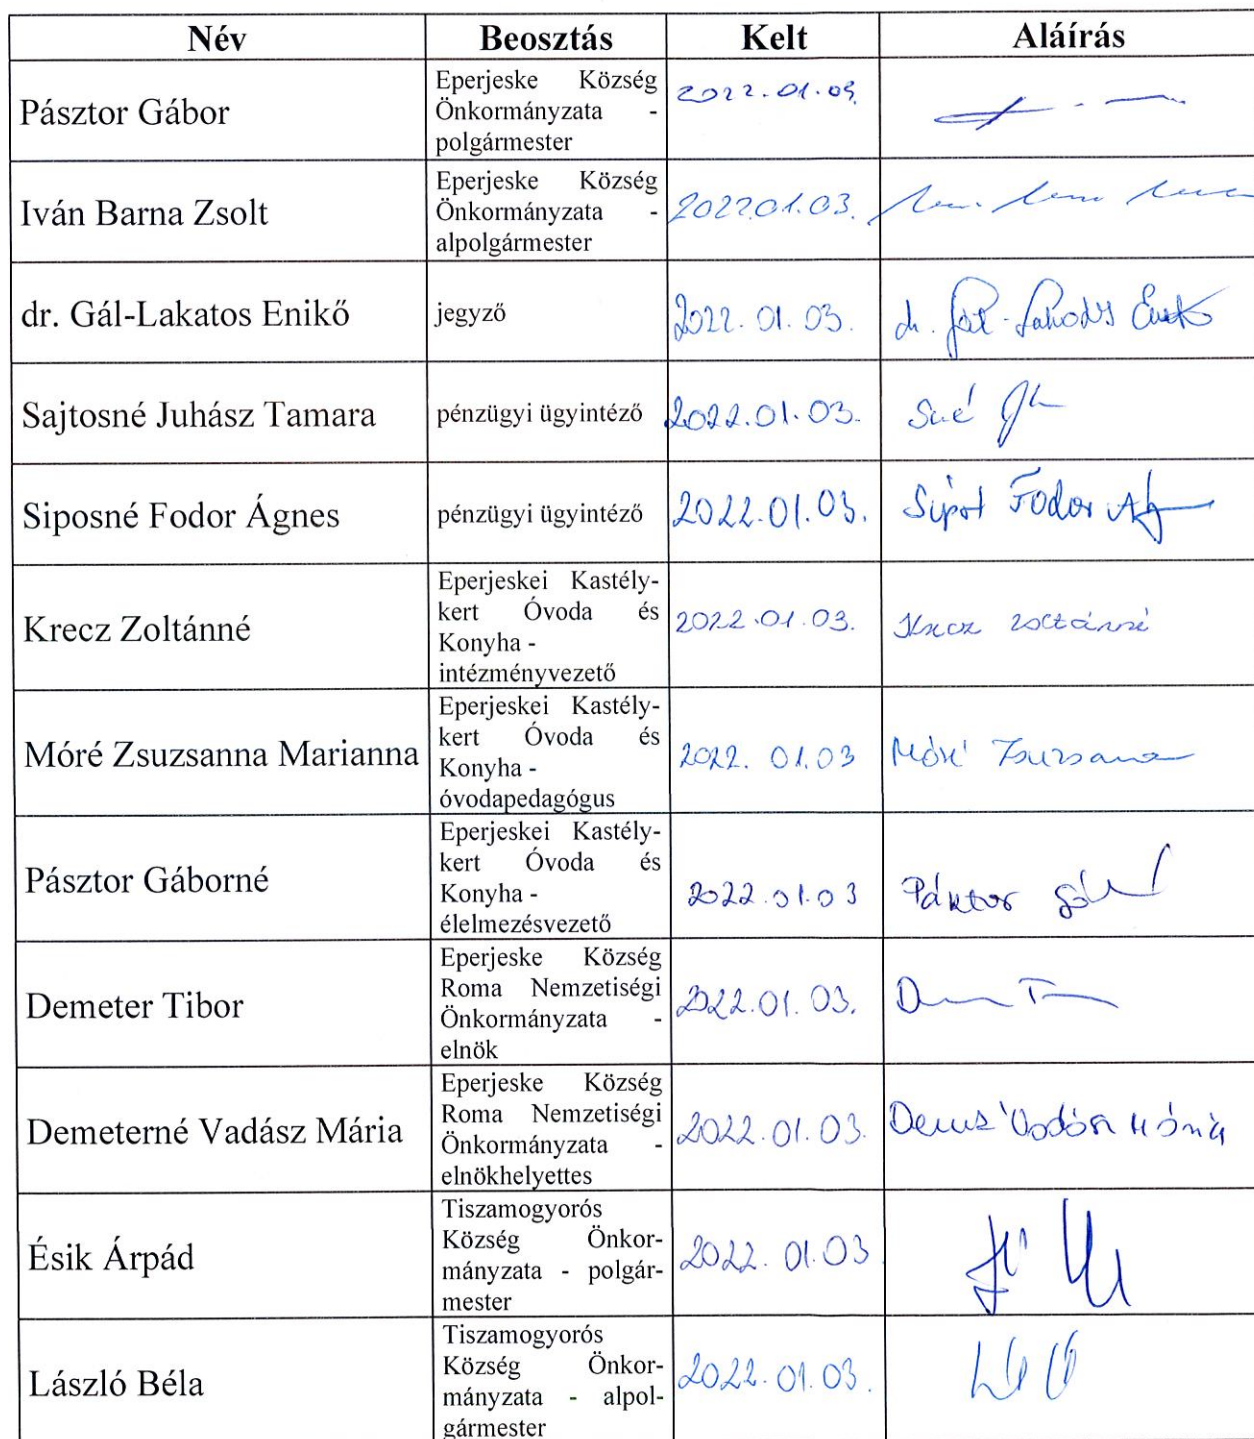 Név Beosztás Kelt Aláírás
Pásztor Gábor
Eperjeske Község
Önkormányzata -
polgármester
2022.01.03.
Iván Barna Zsolt
Eperjeske Község
Önkormányzata -
alpolgármester
2022.01.03.
dr. Gál-Lakatos Enikő
jegyző
2022.01.03.
dr. Gál-Lakatos Enikő
Sajtosné Juhász Tamara
pénzügyi ügyintéző
2022.01.03.
Siposné Fodor Ágnes
pénzügyi ügyintéző
2022.01.03.
Fodor
Krecz Zoltánné
Eperjeskei Kastély-
kert Óvoda és
Konyha -
intézményvezető
2022.01.03.
Krecz Zoltánné
Móré Zsuzsanna Marianna
Eperjeskei Kastély-
kert Óvoda és
Konyha -
óvodapedagógus
2022. 01.03
Móré Zsuzsanna
Pásztor Gáborné
Eperjeskei Kastély-
kert Óvoda és
Konyha -
élelmezésvezető
2022.01.03
Pásztor
Demeter Tibor
Eperjeske Község
Roma Nemzetiségi
Önkormányzata -
elnök
2022.01.03.
Demeterné Vadász Mária
Eperjeske Község
Roma Nemzetiségi
Önkormányzata -
elnökhelyettes
2022.01.03.
Vadász Mária
Ésik Árpád
Tiszamogyorós
Község Önkor-
mányzata - polgár-
mester
2022.01.03
László Béla
Tiszamogyorós
Község Önkor-
mányzata - alpol-
gármester
2022.01.03.